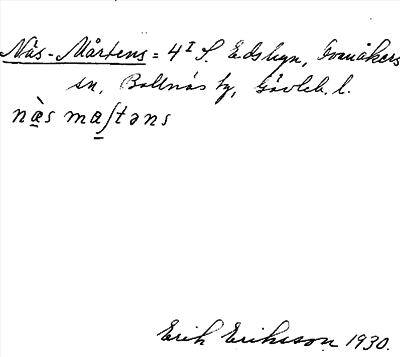 Näs-Mårtens = 4 I S. Edsbyn, Ovanåkers
sn, Bollnäs tg, Gävleb. l.
næ̀s maʃtəns
Erik Eriksson 1930.